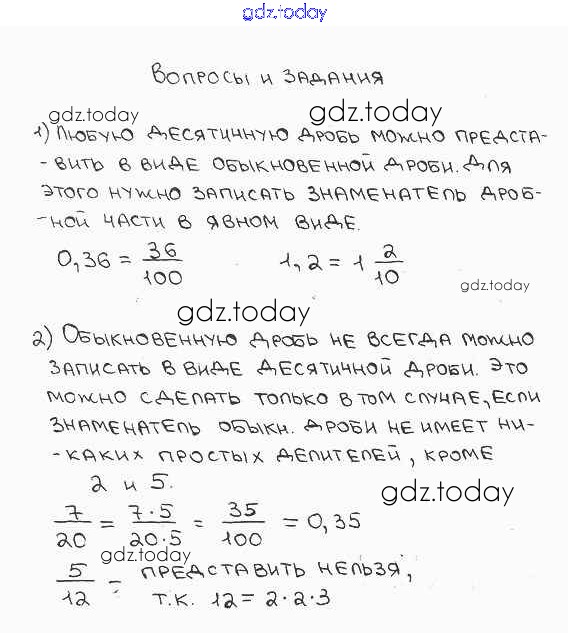 gdz.today
Вопросы и задания
gdz.today
gdz.today
1) Любую десятичную дробь можно предста-
- вить в виде обыкновенной дроби. Для
этого нужно записать знаменатель дроб-
-ной части в явном виде.
0,36 = 36/100    1,2 = 1 2/10
gdz.today
gdz.today
2) Обыкновенную дробь не всегда можно
записать в виде десятичной дроби. Это
можно сделать только в том случае, если
знаменатель обыкн. дроби не имеет ни-
- каких простых делителей, кроме
2 и 5.
gdz.today
7/20 = 7·5/20·5 = 35/100 = 0,35
gdz.today
5/12 - представить нельзя,
т.к. 12 = 2·2·3